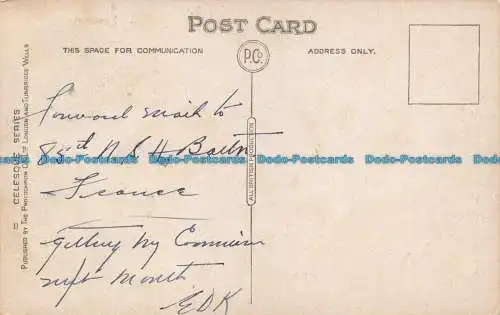 POST CARD
THIS SPACE FOR COMMUNICATION
P.Co.
ADDRESS ONLY.
Forward mail to
85th
France
Getting my Commission
next month
EDK
ALL BRITISH PRODUCTION
CELESQUE SERIES
PUBLISHED BY THE PHOTOCHROM CO. LTD. LONDON AND TUNBRIDGE WELLS
Dodo-Postcards Dodo-Postcards Dodo-Postcards Dodo-Postcards Dodo-Postcards